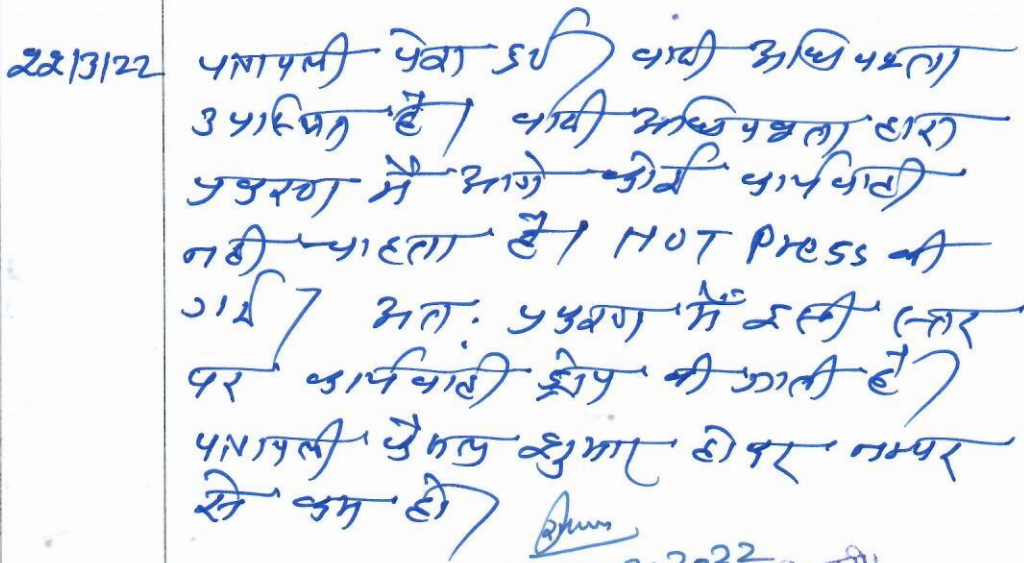 22/3/22 पत्रावली पेश हुई। वादी अधिवक्ता
उपस्थित है। वादी अधिवक्ता द्वारा
प्रकरण में आगे कोई कार्यवाही
नही चाहता है। NOT Press की
गई। अतः प्रकरण में इसी स्तर
पर कार्यवाही ड्रोप की जाती है।
पत्रावली फैसल शुमार होकर नम्बर
से कम हो।
2022